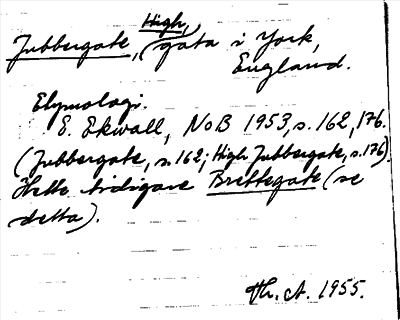 Jubbergate, High, gata i York,
England.
Etymologi.
E. Ekwall, NoB 1953, s. 162, 176.
(Jubbergate, s. 162; High Jubbergate, s. 176)
Hette tidigare Brettegate (se
detta).
Th. A. 1955.